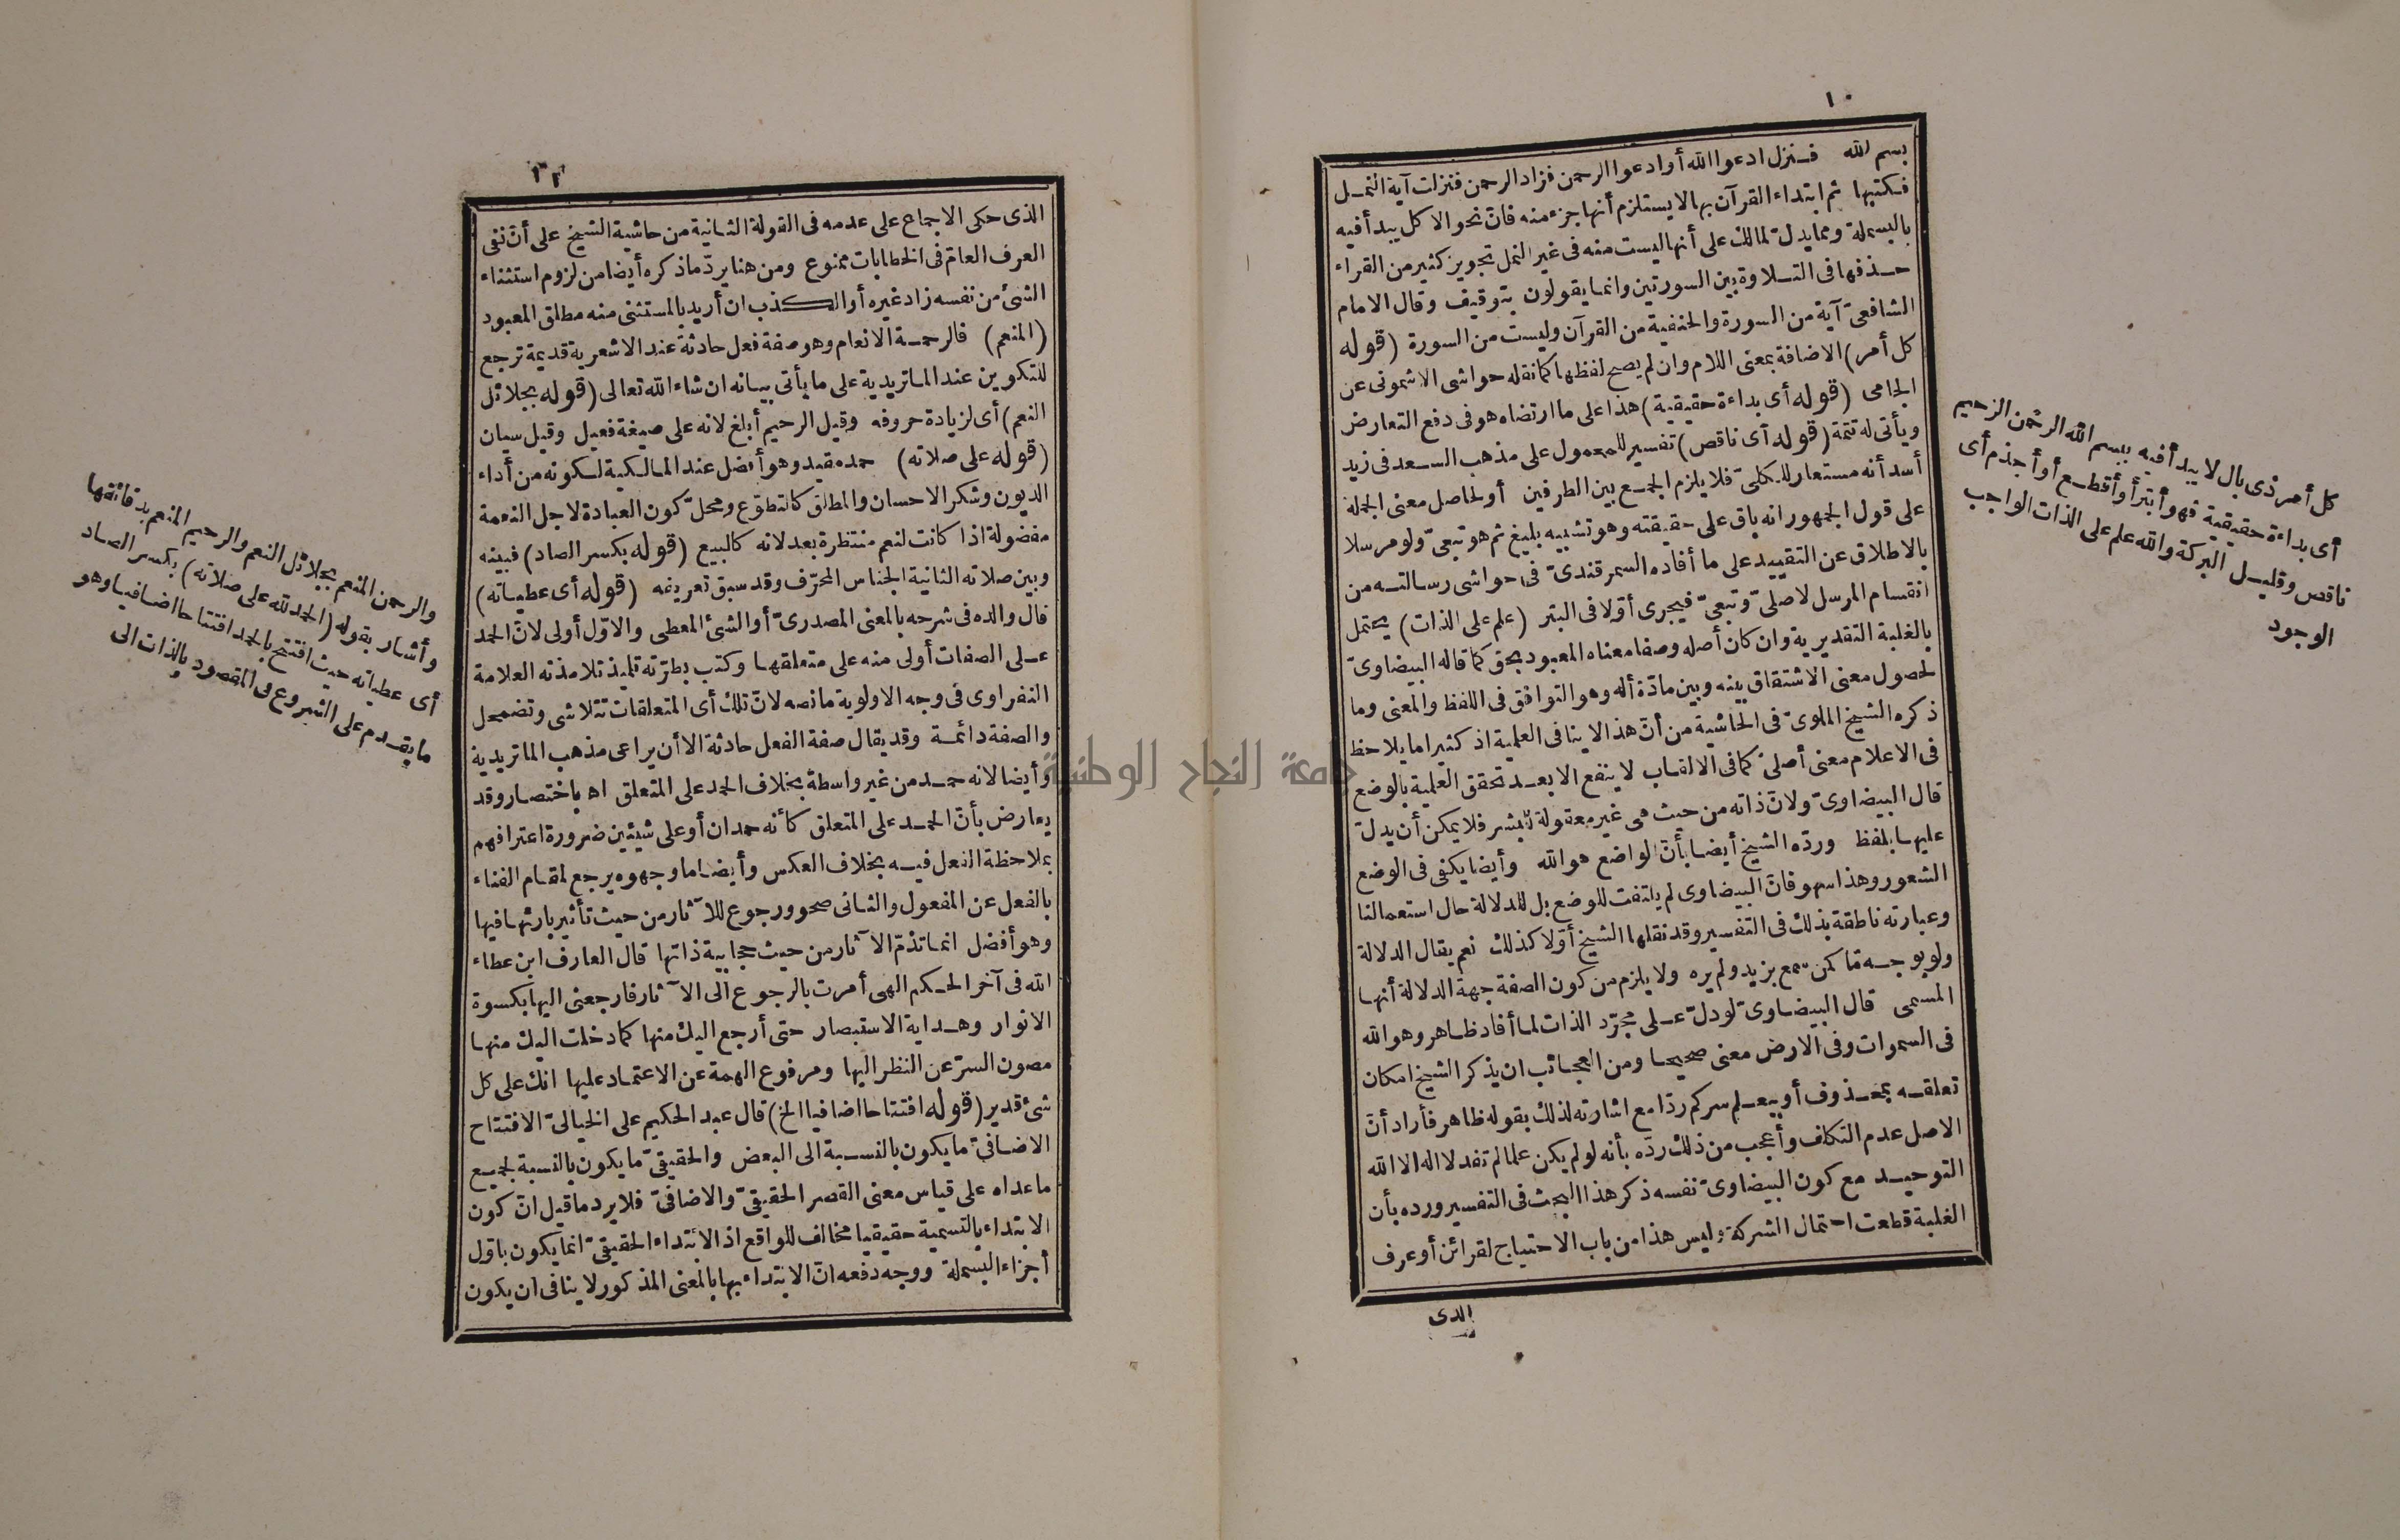 ١٠
بسم الله فنزل ادعوا الله أوادعوا الرحمن فزاد الرحمن فنزلت آية النمل
فكتبها ثم ابتداء القرآن بها لا يستلزم أنها جزء منه فان نحو الاكل يبدأ فيه
بالبسملة ومما يدل لمالك على أنها ليست منه فى غير النمل تجويز كثير من القراء
حذفها فى التلاوة بين السورتين وانما يقولون بتوقيف وقال الامام
الشافعىّ آية من السورة والحنفية من القرآن وليست من السورة (قوله
كل أمر) الاضافة بمعنى اللام وان لم يصح لفظها كما نقله حواشى الاشمونى عن
الجامى (قوله أى بداءة حقيقية) هذا على ما ارتضاه هو فى دفع التعارض
ويأتى له تتمة (قوله أى ناقص) تفسير للمحمول على مذهب السعد فى زيد
أسد أنه مستعار للكلىّ فلا يلزم الجمع بين الطرفين أو لحاصل معنى الجملة
على قول الجمهور انه باق على حقيقته وهو تشبيه بليغ ثم هو تبعىّ ولو مرسلا
بالاطلاق عن التقييد على ما أفاده السمرقندىّ فى حواشى رسالته من
انقسام المرسل لاصلىّ وتبعىّ فيجرى أوّلا فى البتر (علم على الذات) يحتمل
بالغلبة التقديرية وان كان أصله وصفا معناه المعبود بحق كما قاله البيضاوىّ
لحصول معنى الاشتقاق بينه وبين مادّة أله وهو التوافق فى اللفظ والمعنى وما
ذكره الشيخ الملوىّ فى الحاشية من أنّ هذا لا ينافى العلمية اذ كثيرا ما يلاحظ
فى الاعلام معنى أصلىّ كما فى الالقاب لا ينفع الا بعد تحقق العلمية بالوضع
قال البيضاوىّ ولانّ ذاته من حيث هى غير معقولة للبشر فلا يمكن أن يدلّ
عليها بلفظ وردّه الشيخ أيضا بأنّ الواضع هو الله وأيضا يكفى فى الوضع
الشعور وهذا سهو فانّ البيضاوى لم يلتفت للوضع بل للدلالة حال استعمالنا
وعبارته ناطقة بذلك فى التفسير وقد نقلها الشيخ أوّلا كذلك نعم يقال الدلالة
ولو بوجه مّا كمن سمع بزيد ولم يره ولا يلزم من كون الصفة جهة الدلالة أنها
المسمى قال البيضاوىّ لو دلّ على مجرّد الذات لما أفاد ظاهر وهو الله
فى السموات وفى الارض معنى صحيحا ومن العجائب ان يذكر الشيخ امكان
تعلقه بمحذوف أو بيعلم سركم ردّا مع اشارته لذلك بقوله ظاهر فأراد أنّ
الاصل عدم التكلف وأعجب من ذلك ردّه بأنه لو لم يكن علما لم تفد لا اله الا الله
التوحيد مع كون البيضاوىّ نفسه ذكر هذا البحث فى التفسير ورده بأن
الغلبة قطعت احتمال الشركة وليس هذا من باب الاحتياج لقرائن أو عرف
الذى
كل أمر ذى بال لا يبدأ فيه ببسم الله الرحمن الرحيم
أى بداءة حقيقية فهو أبتر أو أقطع أو أجذم أى
ناقص وقليل البركة والله علم على الذات الواجب
الوجود
الذى حكى الاجماع على عدمه فى القولة الثانية من حاشية الشيخ على أنّ نفى
العرف العامّ فى الخطابات ممنوع ومن هنا يردّ ما ذكره أيضا من لزوم استثناء
الشئ من نفسه زاد غيره أو الكذب ان أريد بالمستثنى منه مطلق المعبود
(المنعم) فالرحمة الانعام وهو صفة فعل حادثة عند الاشعرية قديمة ترجع
للتكوين عند الماتريدية على ما يأتى بيانه ان شاء الله تعالى (قوله بجلائل
النعم) أى لزيادة حروفه وقيل الرحيم أبلغ لانه على صيغة فعيل وقيل سيان
(قوله على صلاته) حمده مقيد وهو أفضل عند المالكية لكونه من أداء
الديون وشكر الاحسان والمطلق كالتطوّع ومحلّ كون العبادة لاجل النعمة
مفضولة اذا كانت لنعم منتظرة بعد لانه كالبيع (قوله بكسر الصاد) فبينه
وبين صلاته الثانية الجناس المحرّف وقد سبق تعريفه (قوله أى عطياته)
قال والده فى شرحه بالمعنى المصدرىّ أو الشئ المعطى والاوّل أولى لانّ الحمد
على الصفات أولى منه على متعلقها وكتب بطرّته تلميذ تلامذته العلامة
النفراوى فى وجه الاولوية ما نصه لانّ تلك أى المتعلقات تتلاشى وتضمحل
والصفة دائمة وقد يقال صفة الفعل حادثة الا أن يراعى مذهب الماتريدية
وأيضا لانه حمد من غير واسطة بخلاف الحمد على المتعلق اه باختصار وقد
يعارض بأنّ الحمد على المتعلق كأنه حمدان أو على شيئين ضرورة اعترافهم
بملاحظة الفعل فيه بخلاف العكس وأيضا ما وجهوه يرجع لمقام الفناء
بالفعل عن المفعول والثانى صحو ورجوع للآثار من حيث تأثير بارئها فيها
وهو أفضل انما تذمّ الآثار من حيث حجابية ذاتها قال العارف ابن عطاء
الله فى آخر الحكم الهى أمرت بالرجوع الى الآثار فارجعنى اليها بكسوة
الانوار وهداية الاستبصار حتى أرجع اليك منها كما دخلت اليك منها
مصون السرّ عن النظر اليها ومرفوع الهمة عن الاعتماد عليها انك على كل
شئ قدير (قوله افتتاحا اضافيا الخ) قال عبد الحكيم على الخيالىّ الافتتاح
الاضافىّ ما يكون بالنسبة الى البعض والحقيقىّ ما يكون بالنسبة لجميع
ما عداه على قياس معنى القصر الحقيقىّ والاضافىّ فلا يرد ما قيل انّ كون
الابتداء بالتسمية حقيقيا مخالف للواقع اذ الابتداء الحقيقىّ انما يكون باوّل
أجزاء البسملة ووجه دفعه انّ الابتداء بها بالمعنى المذكور لا ينافى ان يكون
والرحمن المنعم بجلائل النعم والرحيم المنعم بدقائقها
وأشار بقوله (الحمد لله على صلاته) بكسر الصاد
أى عطياته حيث افتتح بالحمد افتتاحا اضافيا وهو
ما يقدم على الشروع فى المقصود بالذات الى
جامعة النجاح الوطنية